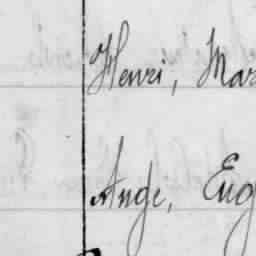 Henri, Mar
Ange, Eug